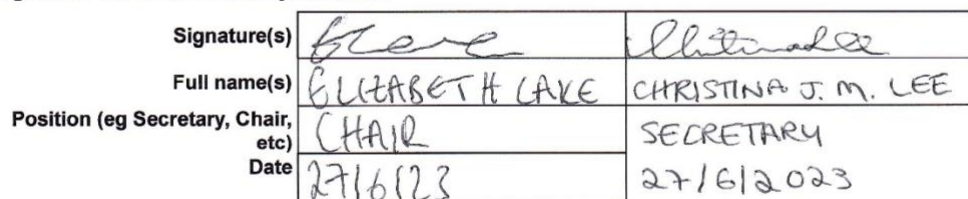 Signature(s)
Full name(s) ELIZABETH LAKE CHRISTINA J. M. LEE
Position (eg Secretary, Chair, etc) CHAIR SECRETARY
Date 27/6/23 27/6/2023